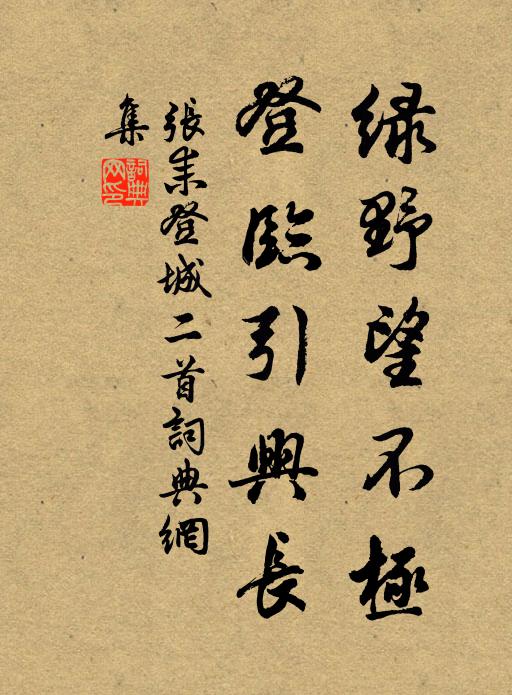 緑野望不極
登臨引興長
張耒登城二首詞典網
集
詞典网印